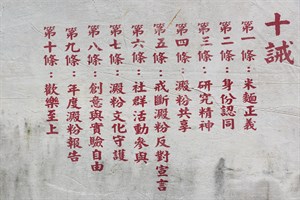 十誡
第一條：米麵正義
第二條：身份認同
第三條：研究精神
第四條：澱粉共享
第五條：戒斷澱粉反對宣言
第六條：社群活動參與
第七條：澱粉文化守護
第八條：創意與實驗自由
第九條：年度澱粉報告
第十條：歡樂至上